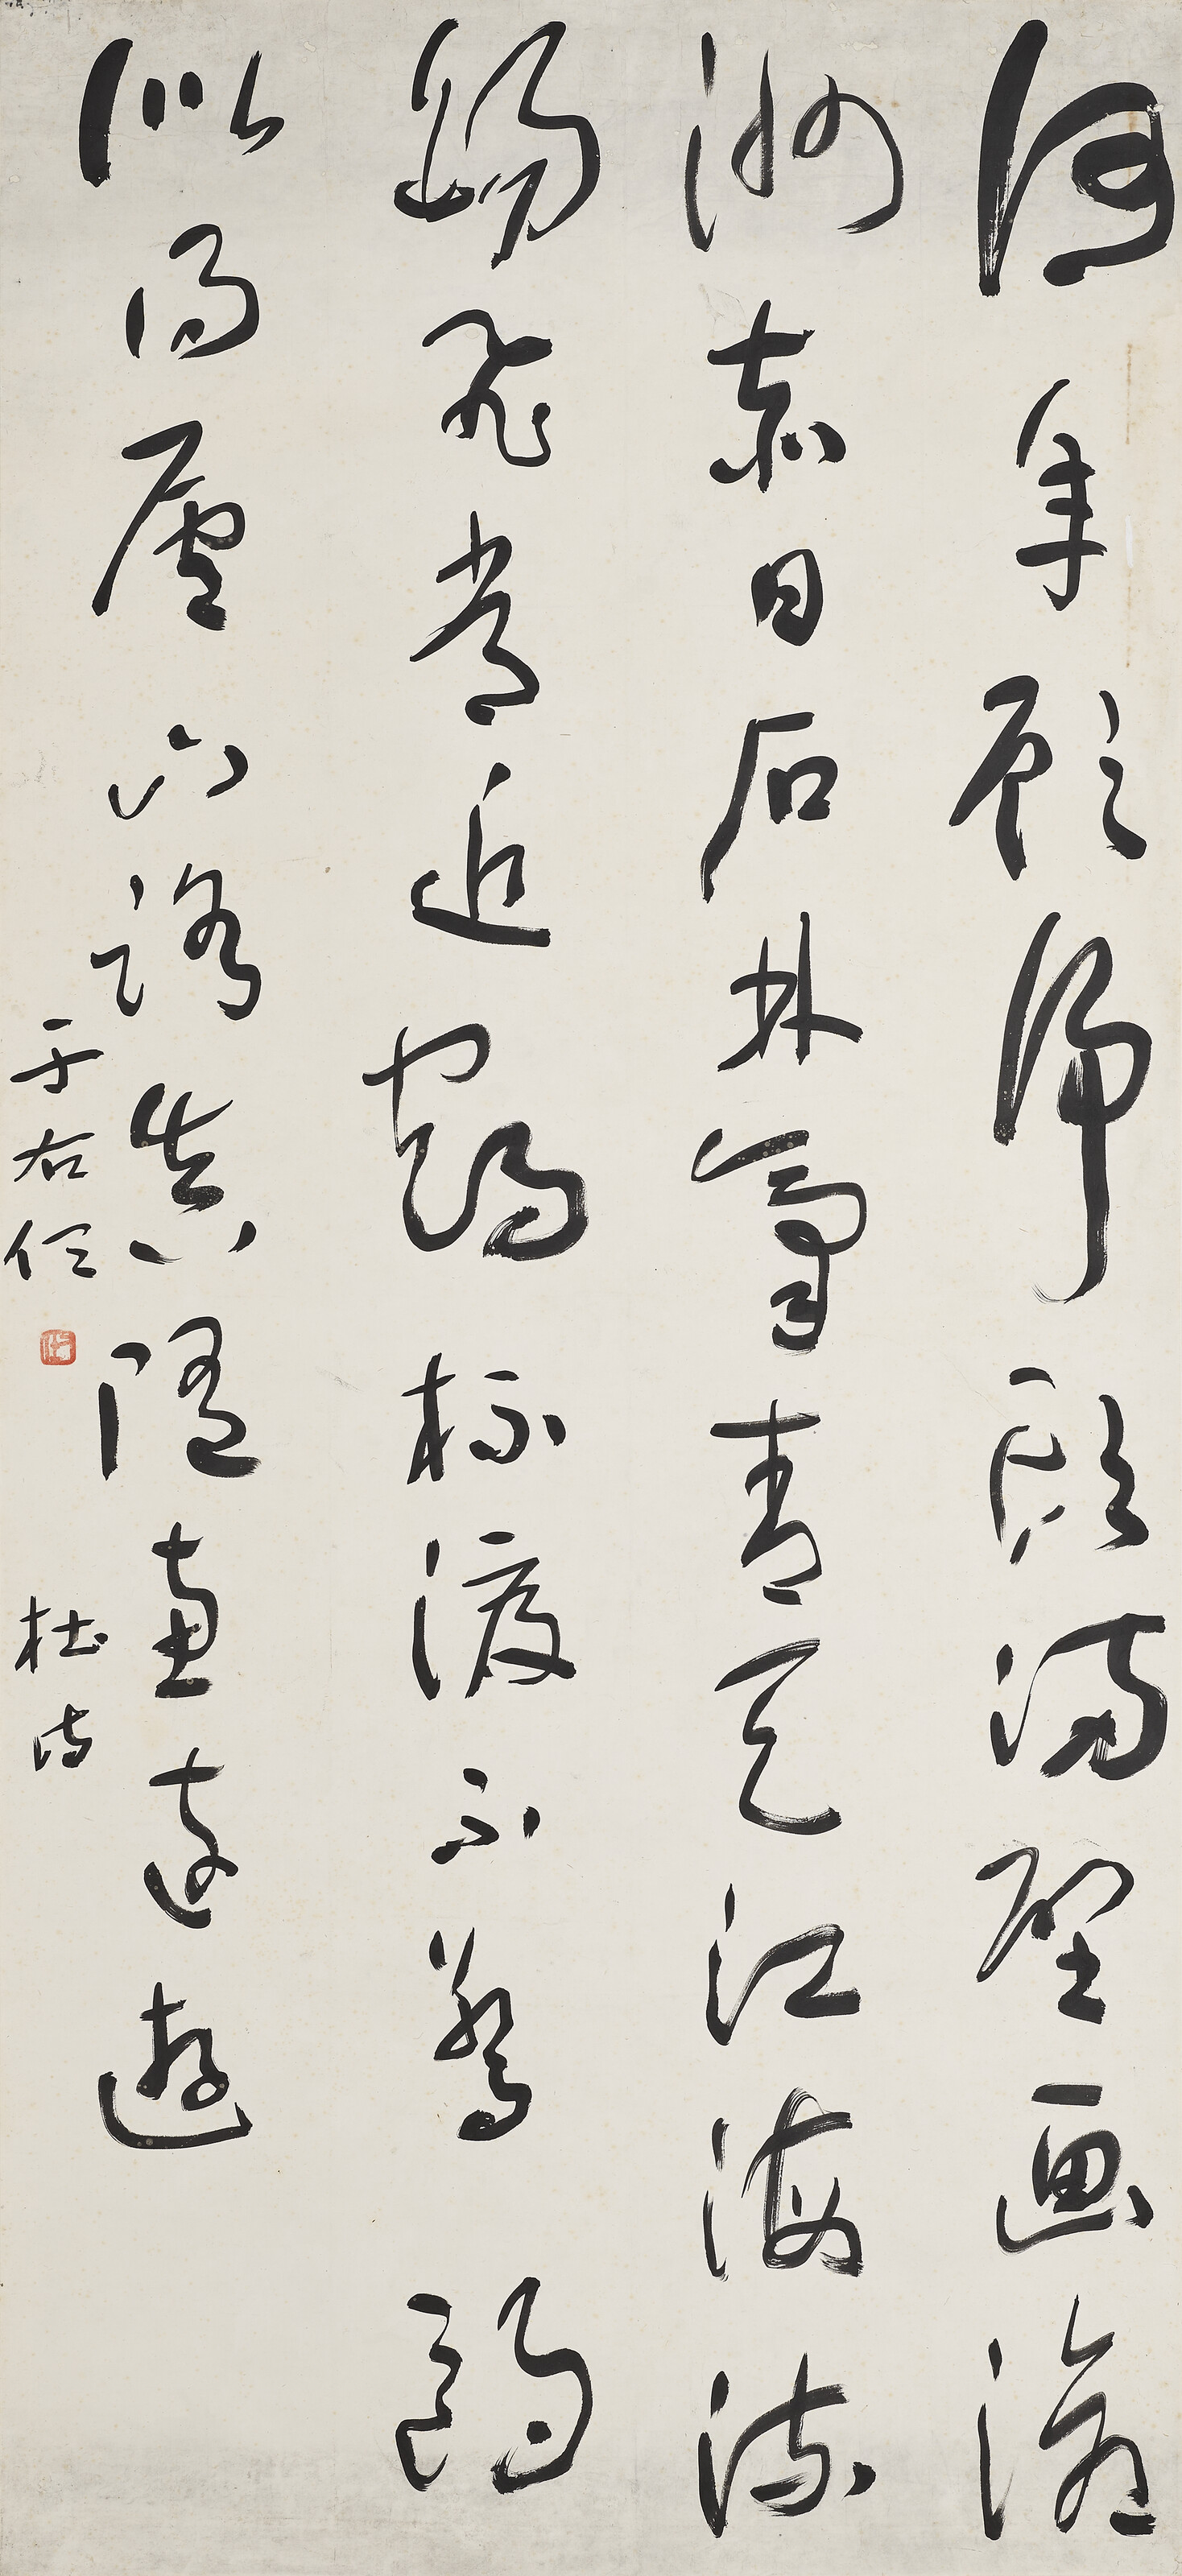 何年顧虎頭滿壁畫滄
洲赤日石林氣青天江海流
錫飛常近鶴杯渡不驚鷗
似得廬山路真隨惠遠遊
于右任 杜詩